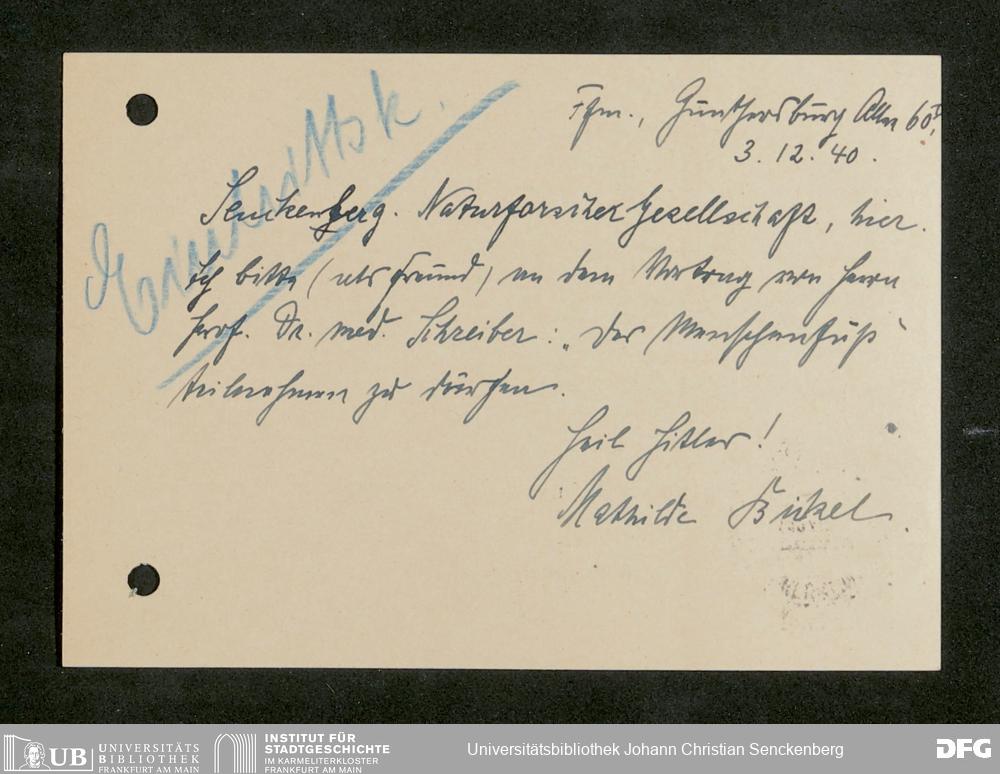 Ffm., Günthersburg Allee 60I,
3. 12. 40.
Eintrittsk.
Senckenberg. Naturforscher Gesellschaft, hier.
Ich bitte (als Freund) an dem Vortrag von Herrn
Prof. Dr. med. Schreiber: „Der Menschenfuß“
teilnehmen zu dürfen.
Heil Hitler!
Mathilde Bickel.
UB UNIVERSITÄTS
BIBLIOTHEK
FRANKFURT AM MAIN
INSTITUT FÜR
STADTGESCHICHTE
IM KARMELITERKLOSTER
FRANKFURT AM MAIN
Universitätsbibliothek Johann Christian Senckenberg
DFG